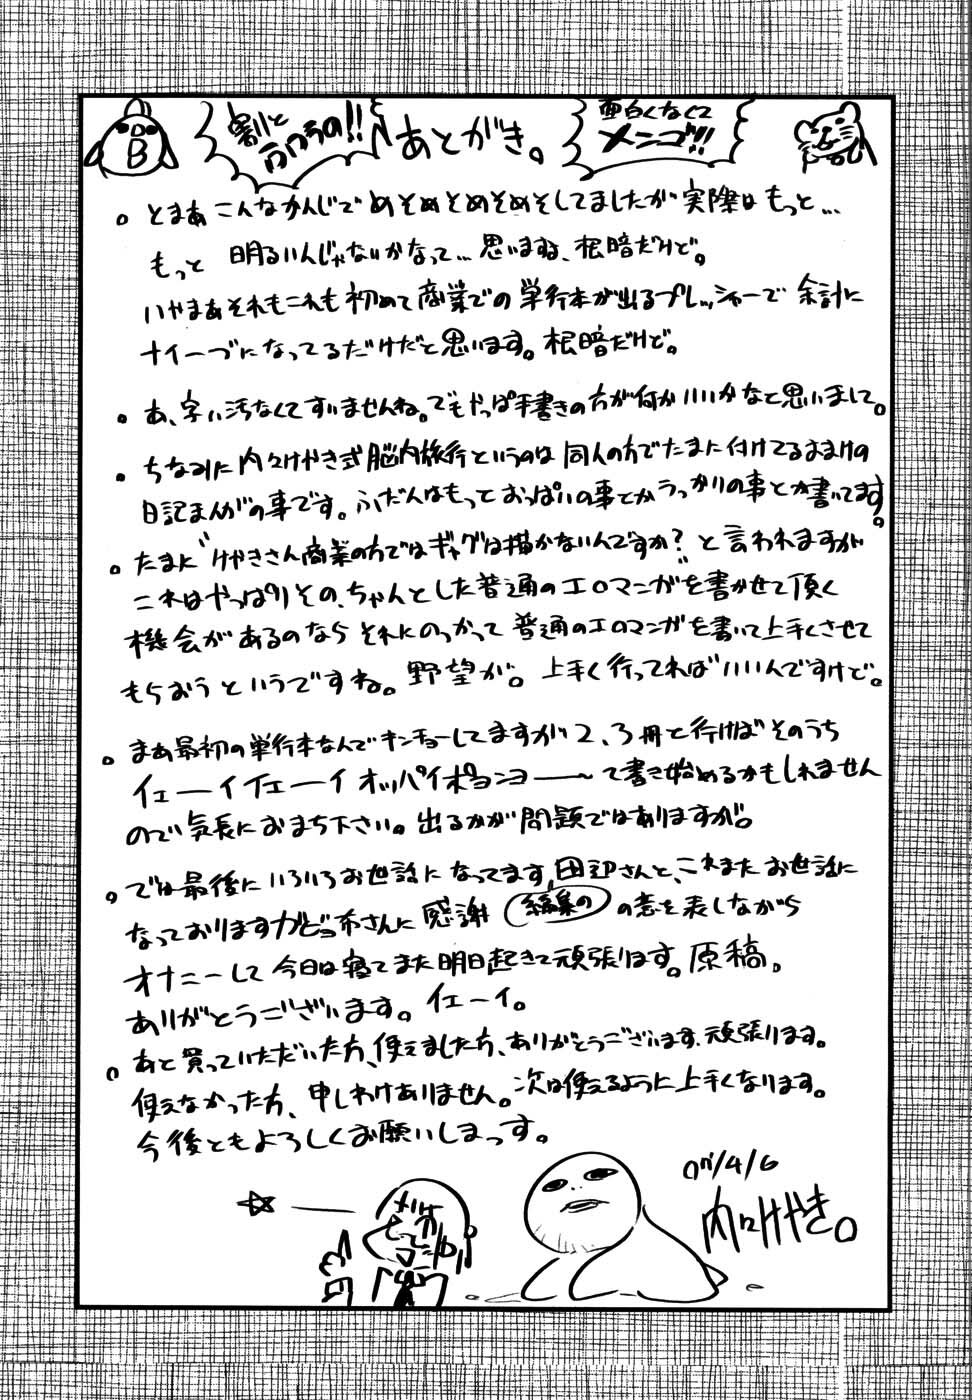 割とふつうの!!
あとがき。
面白くなくてメンゴ!!!
B
。とまあこんなかんじでめそめそめそめそしてましたが実際はもっと…
もっと 明るいんじゃないかなって…思いますね、根暗だけど。
いやまあそれもこれも初めて商業での単行本が出るプレッシャーで 余計に
ナイーブになってるだけだと思います。根暗だけど。
。あ、字ぃ汚なくてすいませんね。でもやっぱ手書きの方が何かいいかなと思いまして。
。ちなみに内々けやき式脳内旅行というのは同人の方でたまに付けてるおまけの
日記まんがの事です。ふだんはもっとおっぱいの事とかうっかりの事とか書いてます。
。たまに〝けやきさん商業の方ではギャグは描かないんですか?〟と言われますが
これはやっぱりその、ちゃんとした普通のエロマンガを書かせて頂く
機会があるのなら それにのっかって 普通のエロマンガを書いて上手くさせて
もらおうというですね。野望が。上手く行ってればいいんですけど。
。まあ最初の単行本なんでキンチョーしてますが2、3冊と行けばそのうち
イェーイイェーイオッパイポヨンヨー〜て書き始めるかもしれません
ので気長におまち下さい。出るかが問題ではありますが。
。では最後にいろいろお世話になってます田辺さんと、これまたお世話に
なっております
さんに感謝 編集の の意を表しながら
オナニーして今日は寝てまた明日起きて頑張ります。原稿。
ありがとうございます。イェーイ。
。あと買っていただいた方、使えました方、ありがとうございます、頑張ります。
使えなかった方、申しわけありません。次は使えるように上手くなります。
今後ともよろしくお願いしまっす。
07/4/6
内々けやき。